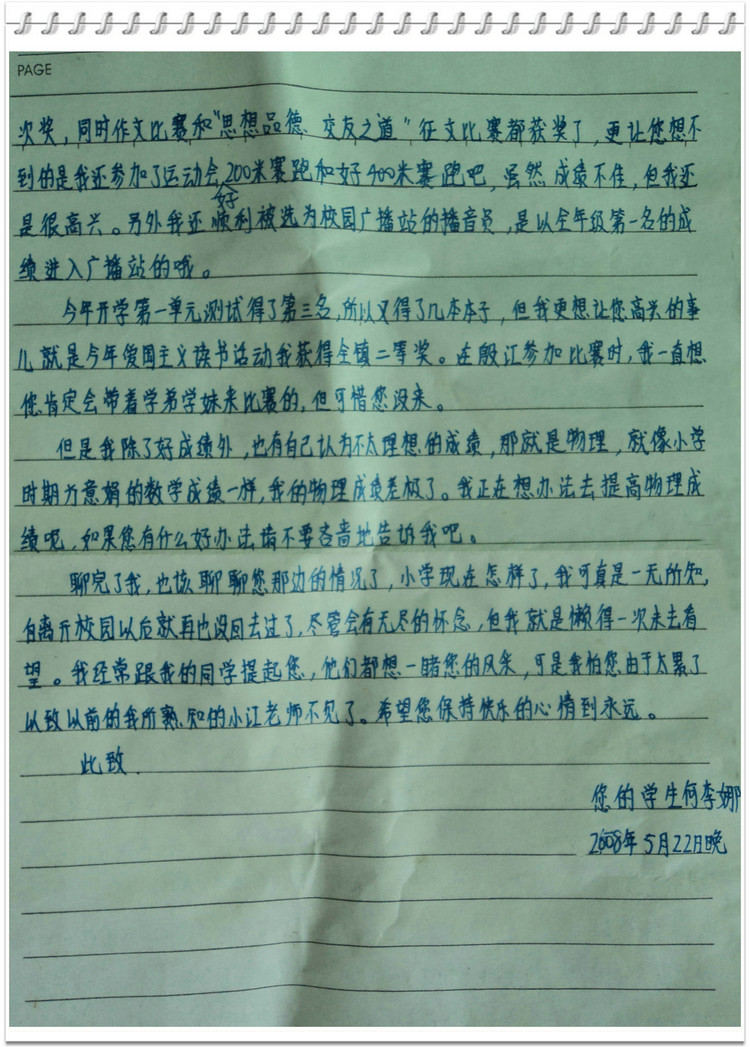 PAGE
次奖，同时作文比赛和“思想品德 交友之道”征文比赛都获奖了，更让您想不
到的是我还参加了运动会，200米赛跑和好400米赛跑吧，虽然成绩不佳，但我还
好
是很高兴。另外我还顺利被选为校园广播站的播音员，是以全年级第一名的成
绩进入广播站的哦。
今年开学第一单元测试得了第三名，所以又得了几本本子，但我更想让您高兴的事
儿就是今年爱国主义读书活动我获得全镇二等奖。在殷汇参加比赛时，我一直想
您肯定会带着学弟学妹来比赛的，但可惜您没来。
但是我除了好成绩外，也有自己认为不太理想的成绩，那就是物理，就像小学
时期方意娟的数学成绩一样，我的物理成绩差极了。我正在想办法去提高物理成
绩呢，如果您有什么好办法请不要吝啬地告诉我吧。
聊完了我，也该聊聊您那边的情况了，小学现在怎样了，我可真是一无所知，
自离开校园以后就再也没回去过了，尽管会有无尽的怀念，但我就是懒得一次未去看
望。我经常跟我的同学提起您，他们都想一睹您的风采，可是我怕您由于太累了
以致以前的我所熟知的小江老师不见了。希望您保持快乐的心情到永远。
此致
您的学生何李娜
2008年5月22日晚